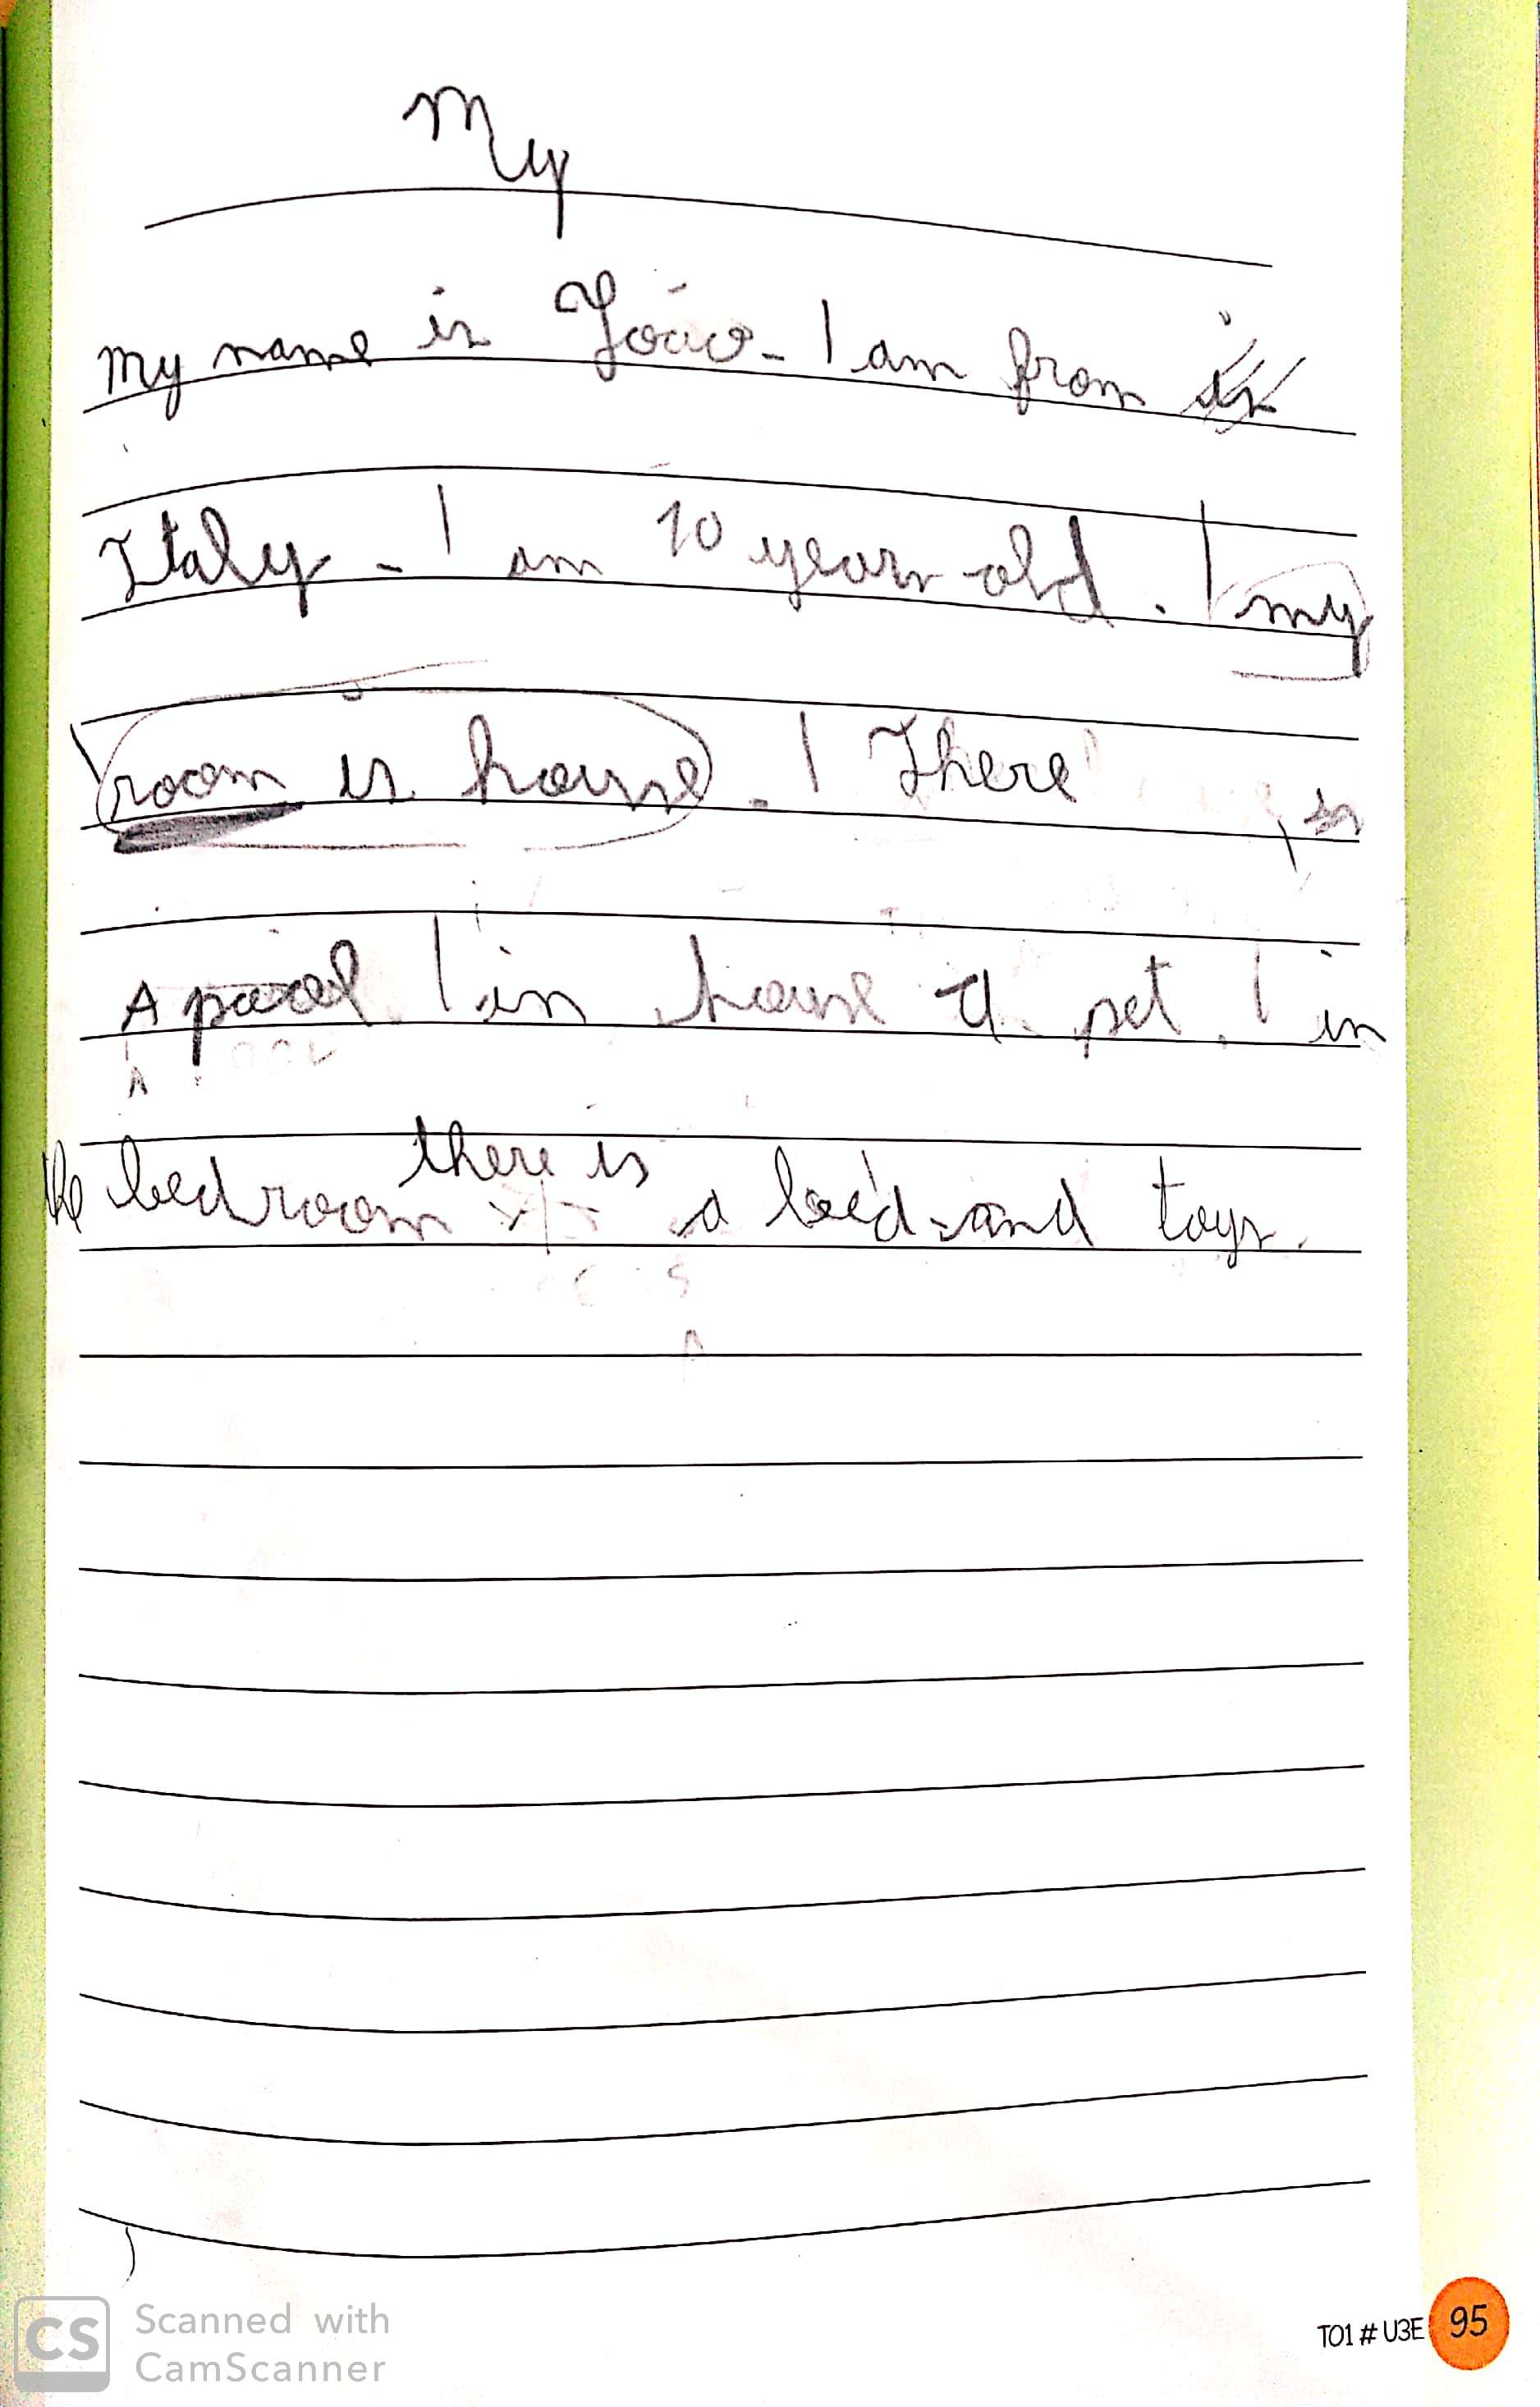 My
My name is João. I am from
Italy. I am 10 years old. I my
room is house. I There is
A pool I in house a pet. I in
the bedroom there is a bed and toys.
Scanned with
CamScanner
T01 # U3E 95
CS